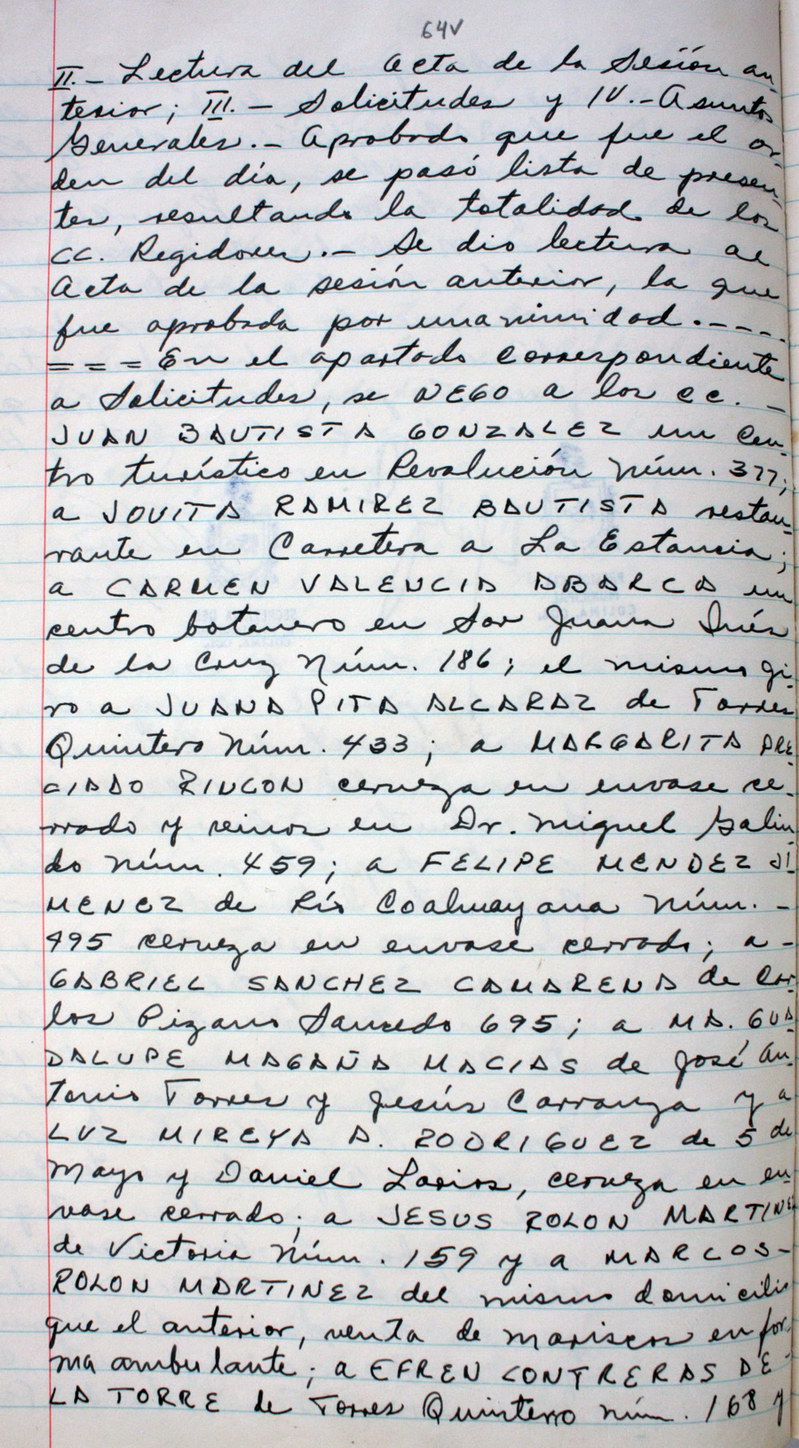 64V
II.- Lectura del acta de la Sesión an-
terior; III.- Solicitudes y IV.- Asuntos
Generales.- Aprobado que fue el or-
den del día, se pasó lista de presen-
tes, resultando la totalidad de los
CC. Regidores.- Se dio lectura al
Acta de la sesión anterior, la que
fue aprobada por unanimidad.----
=== En el apartado correspondiente
a Solicitudes, se NEGO a los CC. -
JUAN BAUTISTA GONZALEZ un Cen-
tro turístico en Revolución Núm. 377;
a JOVITA RAMIREZ BAUTISTA restau-
rante en Carretera a La Estancia;
a CARMEN VALENCIA ABARCA un
centro botanero en Sor Juana Inés
de la Cruz Núm. 186; el mismo gi-
ro a JUANA PITA ALCARAZ de Torres
Quintero Núm. 433; a MARGARITA PRE-
CIADO RINCON cerveza en envase ce-
rrado y vinos en Dr. Miguel Galin-
do Núm. 459; a FELIPE MENDEZ JI
MENEZ de Río Coahuayana Núm. -
495 cerveza en envase cerrado; a -
GABRIEL SANCHEZ CAMARENA de Car-
los Pizano Saucedo 695; a MA. GUA
DALUPE MAGAÑA MACIAS de José An-
tonio Torres y Jesús Carranza y a
LUZ MIREYA A. RODRIGUEZ de 5 de
Mayo y Daniel Larios, cerveza en en-
vase cerrado; a JESUS ROLON MARTINEZ
de Victoria Núm. 159 y a MARCOS -
ROLON MARTINEZ del mismo domicilio
que el anterior, venta de mariscos en for-
ma ambulante; a EFREN CONTRERAS DE -
LA TORRE de Torres Quintero Núm. 168 y